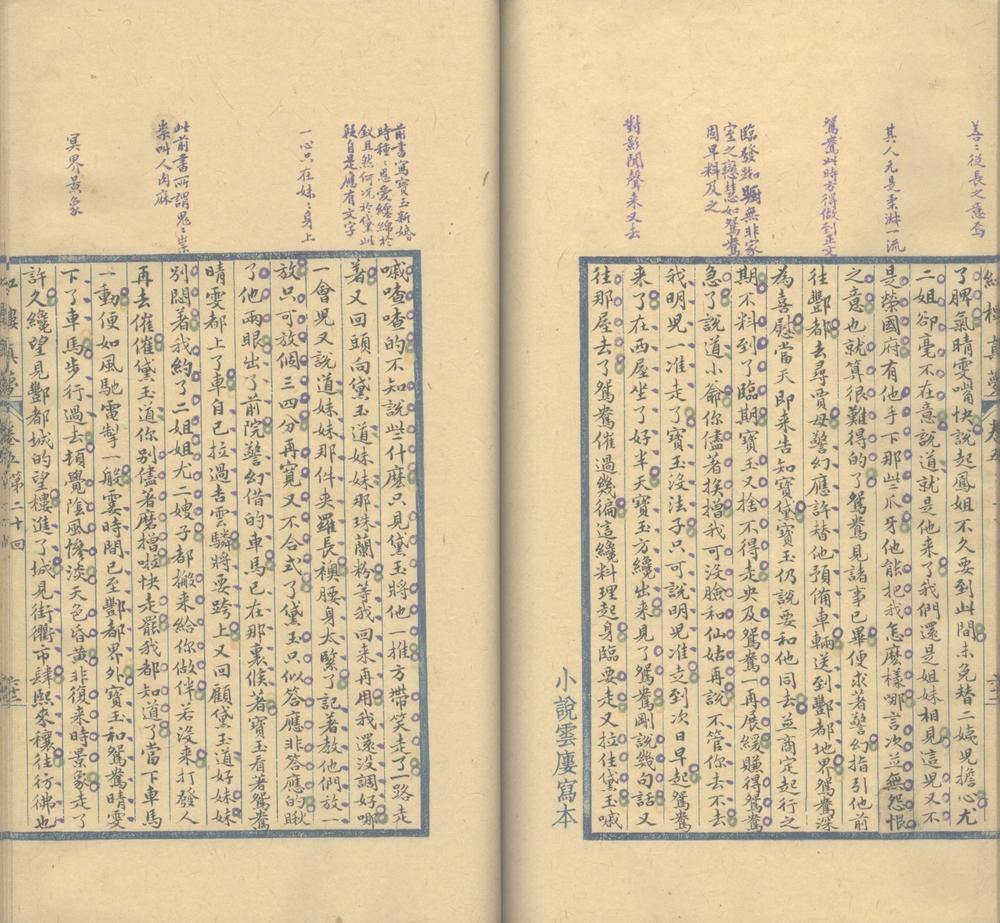 善〻從長之意焉
其人元是柔淋一流
鴛鴦此時方得做到正文
臨發踟躕無非家
室之戀慧如鴛鴦
固早料及之
對影聞聲来又去
紅樓真夢
了脾氣晴雯嘴快説起鳳姐不久要到此間未免替二姨兒擔心尤
二姐卻毫不在意説道就是他来了我們還是姐妹相見這兒又不
是榮國府有他手下那些爪牙他能把我怎麽樣哪言次並無怨恨
之意也就算很難得的了鴛鴦見諸事已畢便求著警幻指引他前
往酆都去尋賈母警幻應許替他預備車輛送到酆都地界鴛鴦深
為喜慰當天即来告知寶黛寶玉仍説要和他同去並商定起行之
期不料到了臨期寶玉又捨不得走央及鴛鴦一再展緩賺得鴛鴦
急了説道小爺你儘著挨蹭我可沒臉和仙姑再説不管你去不去
我明兒一准走了寶玉沒法子只可説明兒准走到次日早起鴛鴦
来了在西屋坐了好半天寶玉方纔出来見了鴛鴦剛説幾句話又
往那屋去了鴛鴦催過幾徧這纔料理起身臨要走又拉住黛玉嘁
小說雲廔寫本
前書寫寶玉新婚
時種〻恩愛纏綿於
釵且然何况於黛此
段自是應有文字
一心只在妹〻身上
此前書所謂鬼〻祟
祟叫人肉麻
冥界景象
嘁喳喳的不知説些什麽只見黛玉將他一推方帶笑走了一路走
著又回頭向黛玉道妹妹那珠蘭粉等我回来再用我還没調好哪
一會兒又説道妹妹那件夹羅長襖腰身太緊了記著教他們放一
放只可放個三四分再寬又不合式了黛玉只似答應非答應的瞅
了他兩眼出了前院警幻借的車馬已在那裏候著寶玉看著鴛鴦
晴雯都上了車自己拉過吉雲驎將要跨上又回顧黛玉道好妹妹
別悶著我約了二姐姐尤二嫂子都搬来給你做伴若没来打發人
再去催催黛玉道你別儘著磨蹭啦快走罷我都知道了當下車馬
一動便如風馳電掣一般霎時間已至酆都界外寶玉和鴛鴦晴雯
下了車馬步行過去頓覺陰風慘淡天色昏黄非復来時景象走了
許久纔望見酆都城的望樓進了城見街衢市肆熙来穰往彷彿也
紅樓真夢 卷五 第二十回